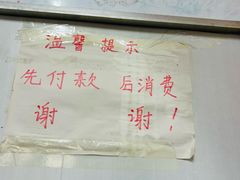 温馨提示
先付款 后消费
谢 谢！